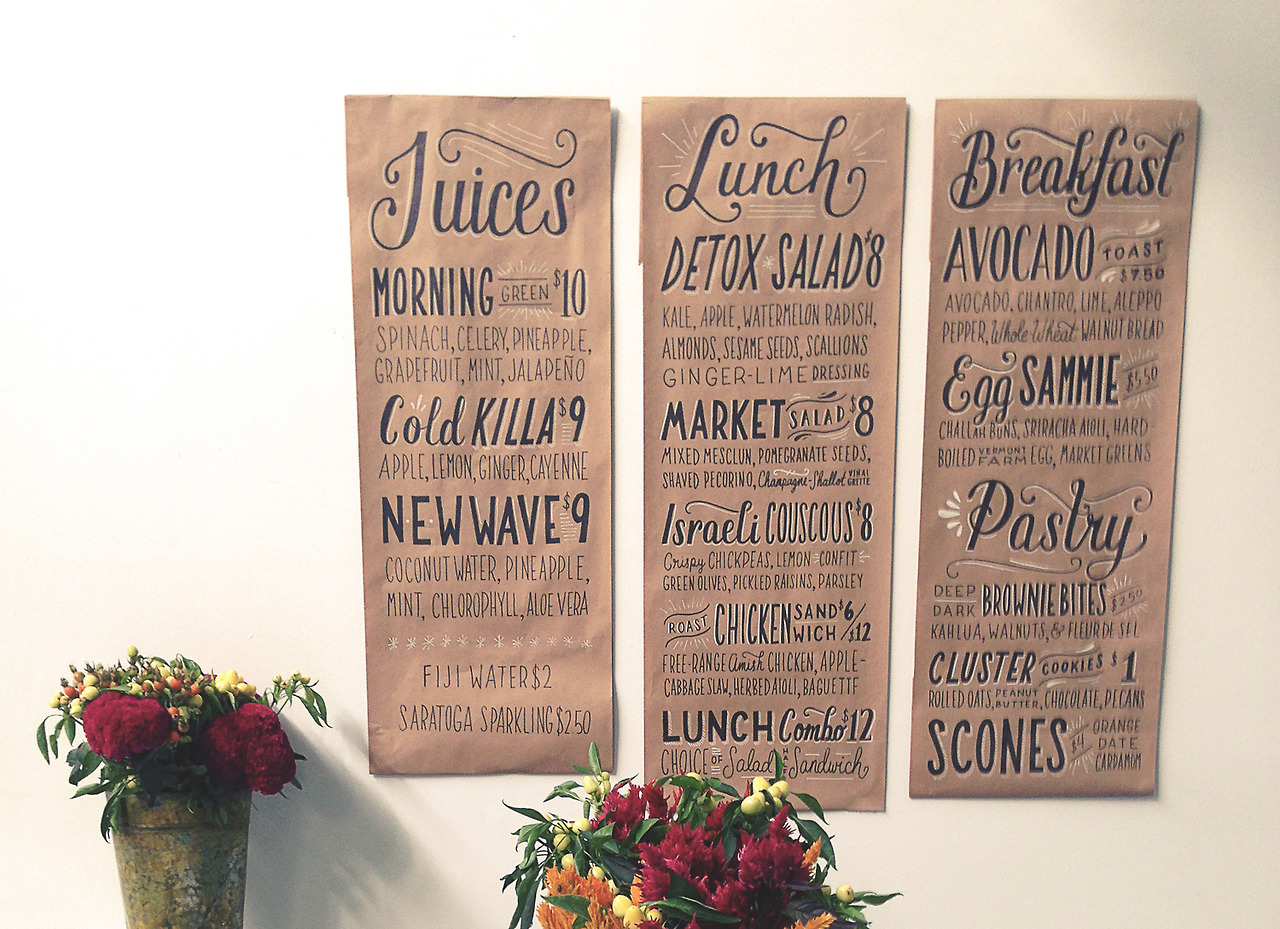 Juices
MORNING GREEN $10
SPINACH, CELERY, PINEAPPLE,
GRAPEFRUIT, MINT, JALAPEÑO
Cold KILLA $9
APPLE, LEMON, GINGER, CAYENNE
NEW WAVE $9
COCONUT WATER, PINEAPPLE,
MINT, CHLOROPHYLL, ALOE VERA
* * * * * * * * * * * * * * *
FIJI WATER $2
SARATOGA SPARKLING $2.50
Lunch
DETOX * SALAD $8
KALE, APPLE, WATERMELON RADISH,
ALMONDS, SESAME SEEDS, SCALLIONS
GINGER-LIME DRESSING
MARKET SALAD $8
MIXED MESCLUN, POMEGRANATE SEEDS,
SHAVED PECORINO, Champagne-Shallot VINAIGRETTE
Israeli COUSCOUS $8
Crispy CHICKPEAS, LEMON CONFIT
GREEN OLIVES, PICKLED RAISINS, PARSLEY
ROAST CHICKEN SANDWICH $6/$12
FREE-RANGE Amish CHICKEN, APPLE-
CABBAGE SLAW, HERBED AIOLI, BAGUETTE
LUNCH Combo $12
CHOICE OF Salad HALF Sandwich
Breakfast
AVOCADO TOAST $7.50
AVOCADO, CILANTRO, LIME, ALEPPO
PEPPER, Whole-Wheat WALNUT BREAD
Egg SAMMIE $5.50
CHALLAH BUNS, SRIRACHA AIOLI, HARD-
BOILED VERMONT FARM EGG, MARKET GREENS
Pastry
DEEP DARK BROWNIE BITES $2.50
KAHLUA, WALNUTS, & FLEUR DE SEL
CLUSTER COOKIES $1
ROLLED OATS, PEANUT BUTTER, CHOCOLATE, PECANS
SCONES $4 ORANGE DATE CARDAMOM